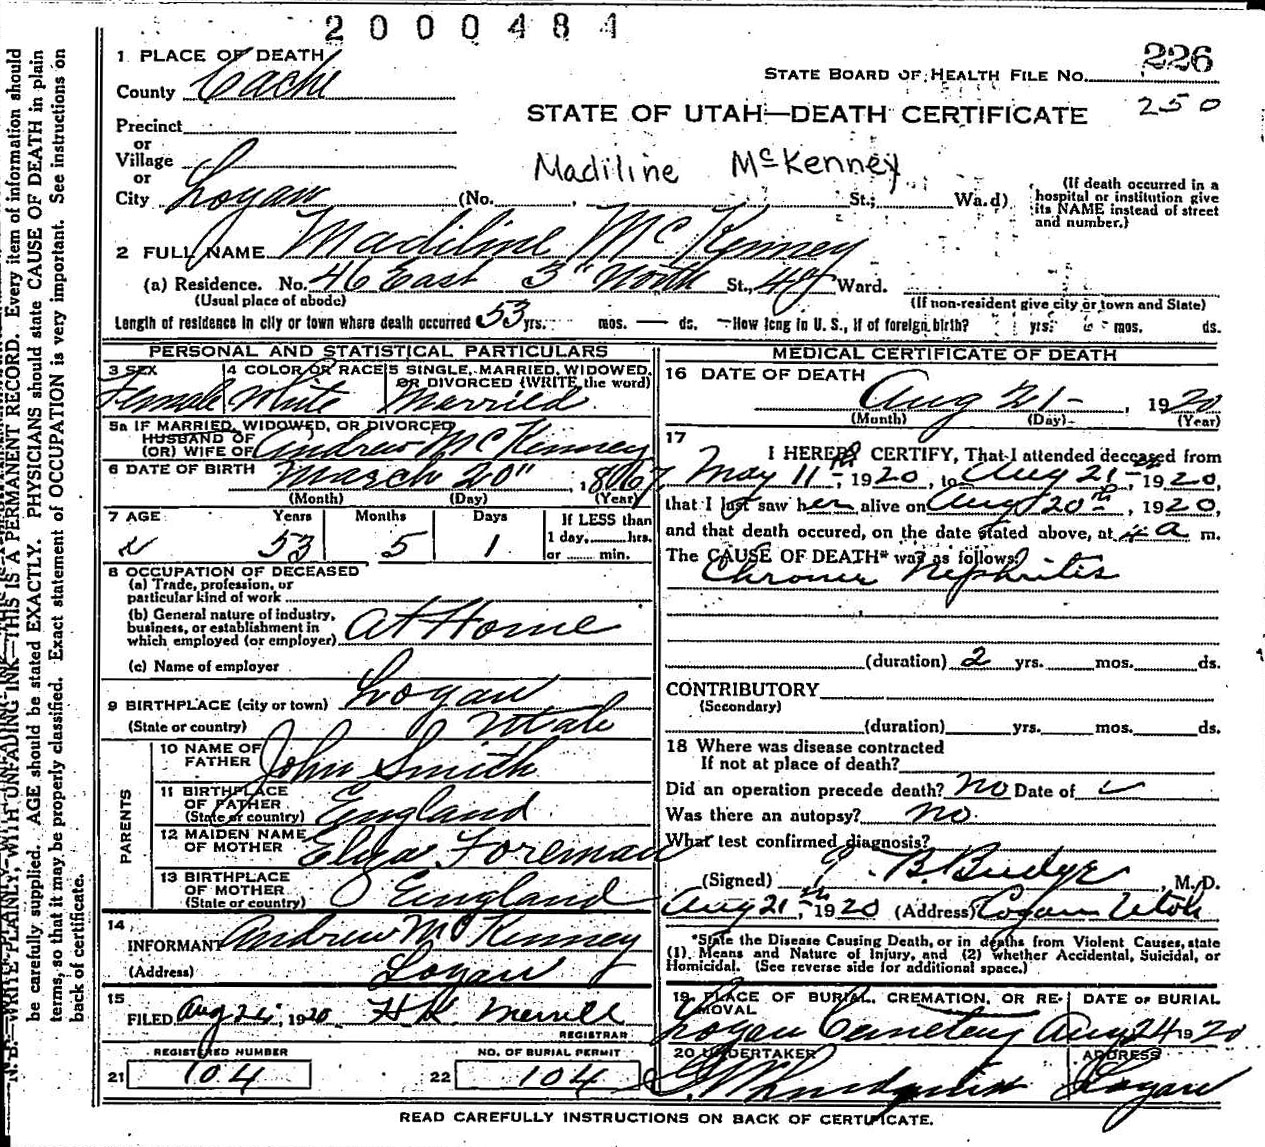 2000484
1 PLACE OF DEATH
County Cache
STATE BOARD OF HEALTH FILE No. 226
250
STATE OF UTAH—DEATH CERTIFICATE
Precinct
or
Village
or
Madiline McKenney
City Logan (No. , St.; Wa.d)
(If death occurred in a hospital or institution give its NAME instead of street and number.)
2 FULL NAME Madiline McKenney
(a) Residence. No. 46 East 3" North St., 4th Ward.
(Usual place of abode)
(If non-resident give city or town and State)
Length of residence in city or town where death occurred 53 yrs. mos. — ds. How long in U. S., if of foreign birth? yrs. mos. ds.
PERSONAL AND STATISTICAL PARTICULARS
3 SEX
Female
4 COLOR OR RACE
White
5 SINGLE, MARRIED, WIDOWED, OR DIVORCED (WRITE the word)
Married
5a IF MARRIED, WIDOWED, OR DIVORCED
HUSBAND OF
(OR) WIFE OF Andrew McKenney
6 DATE OF BIRTH March 20", 1867
(Month) (Day) (Year)
7 AGE Years Months Days
53 5 1
If LESS than
1 day, hrs.
or min.
8 OCCUPATION OF DECEASED
(a) Trade, profession, or
particular kind of work
(b) General nature of industry,
business, or establishment in
which employed (or employer) At Home
(c) Name of employer
9 BIRTHPLACE (city or town) Logan
(State or country) Utah
PARENTS
10 NAME OF
FATHER John Smith
11 BIRTHPLACE
OF FATHER
(State or country) England
12 MAIDEN NAME
OF MOTHER Eliza Foreman
13 BIRTHPLACE
OF MOTHER
(State or country) England
14
INFORMANT Andrew McKenney
(Address) Logan
15
FILED Aug 24, 1920 H.K. Merrill
REGISTRAR
REGISTERED NUMBER
21 104
NO. OF BURIAL PERMIT
22 104
MEDICAL CERTIFICATE OF DEATH
16 DATE OF DEATH
Aug 21-, 1920
(Month) (Day) (Year)
17
I HEREBY CERTIFY, That I attended deceased from
May 11th, 1920, to Aug 21st, 1920,
that I last saw her alive on Aug 20th, 1920,
and that death occured, on the date stated above, at 4 a m.
The CAUSE OF DEATH* was as follows:
Chronic Nephritis
(duration) 2 yrs. mos. ds.
CONTRIBUTORY
(Secondary)
(duration) yrs. mos. ds.
18 Where was disease contracted
If not at place of death?
Did an operation precede death? No Date of
Was there an autopsy? No.
What test confirmed diagnosis?
(Signed) B. Budge, M. D.
Aug 21, th 1920 (Address) Logan Utah
*State the Disease Causing Death, or in deaths from Violent Causes, state
(1) Means and Nature of Injury, and (2) whether Accidental, Suicidal, or
Homicidal. (See reverse side for additional space.)
19 PLACE OF BURIAL, CREMATION, OR REMOVAL
Logan Cemetery
DATE OF BURIAL
Aug 24 1920
20 UNDERTAKER
ADDRESS
Logan
READ CAREFULLY INSTRUCTIONS ON BACK OF CERTIFICATE.
N. B.—WRITE PLAINLY, WITH UNFADING INK—THIS IS A PERMANENT RECORD. Every item of information should
be carefully supplied. AGE should be stated EXACTLY. PHYSICIANS should state CAUSE OF DEATH in plain
terms, so that it may be properly classified. Exact statement of OCCUPATION is very important. See instructions on
back of certificate.